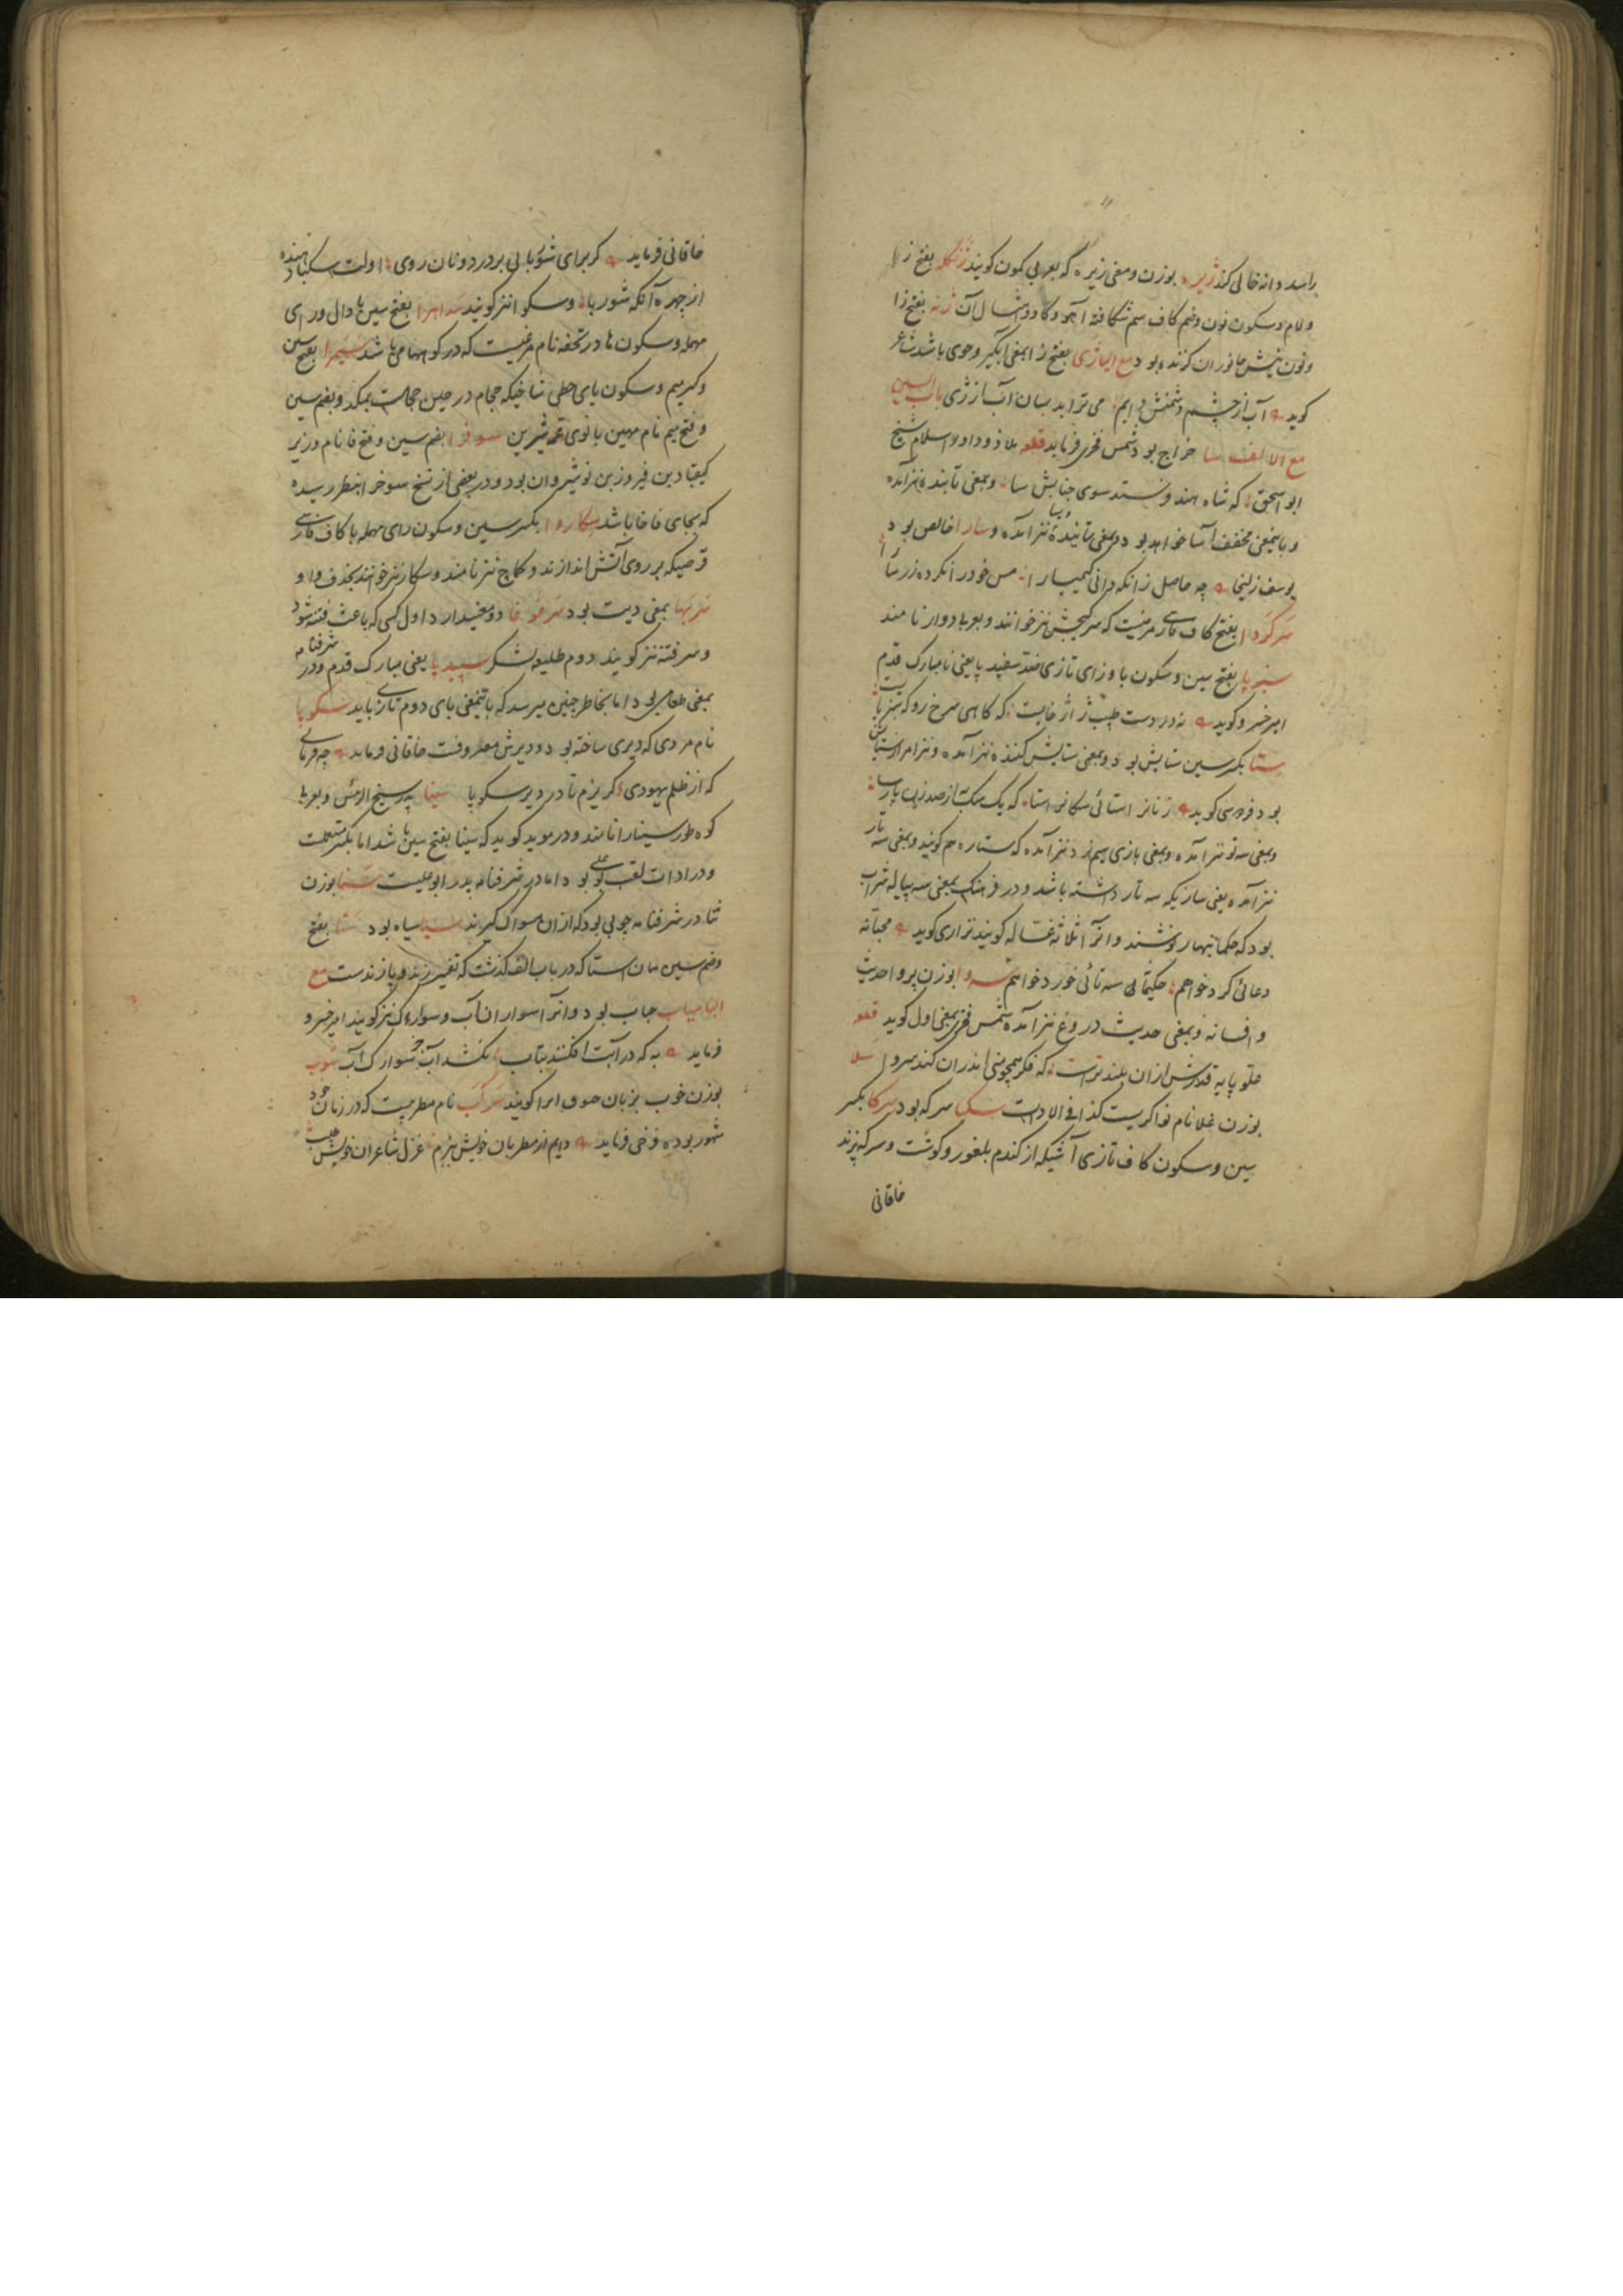 راسد دانه خالی کند ژیره بوزن و معنی زیره که بعربی کمون کویند ژنکله بفتح زا
و لام و سکون نون و ضم کاف سم شکافته آهو و کاو و امثال آن ژنه بفتح زا
و نون نیش جانوران کزنده بود مع الیا ژی بفتح زا بمعنی آبکیر و جوی باشد شاعر
کوید آب از چشم دشمنش دایم می ترابد بسان آب از ژی باب السین
مع الالف سا خراج بود شمس فخری فرماید قطعه ملاذ و داور اسلام شیخ
ابو اسحق که شاه هند فرستد سوی جنابش سا و بمعنی آینده نیز آمده
و باینمعنی مخفف آسا خواهد بود و بمعنی نیز آمده و سارا خالص بود
یوسف زلیخا چه حاصل زانکه دانی کیمیا را مس خود را نکرده زر سارا
سرکردا بفتح کاف فارسی مرضیست که سرکیجش نیز خوانند و بعربی دوار نامند
سبزپا بفتح سین و سکون با و زای تازی ضد سفید پا یعنی نامبارک قدم
امیر خسرو کوید نه در دست طبیب ژاژ خایست که کاهی سرخ رو که سبز پایست
ستا بکسر سین ستایش بود و بمعنی ستایش کننده نیز آمده و نیز امر از ستایش
بود فردوسی کوید
و بمعنی سه تو نیز آمده و بمعنی بازی سیم نرد نیز آمده که ستاره هم کویند و بمعنی سه تار
نیز آمده یعنی سازیکه سه تار داشته باشد و در فرهنک بمعنی سه پیاله شراب
بود که حکما بنهار نوشند و آنرا ثلاثه غساله کویند نزاری کوید محبانه
دعائی کرد خواهم حکیمانه سه تائی خورد خواهم سروا بوزن پروا حدیث
و افسانه و بمعنی حدیث دروغ نیز آمده شمس فخری بمعنی اول کوید قطعه
علو پایه قدرش ازان بلندترست که فکر همچو منی اندران کند سروا سلا
بوزن علا نام نواکریست کذا فی الادات سکبا سرکه بود سرکا بکسر
سین و سکون کاف تازی آشیکه از کندم بلغور و کوشت و سرکه پزند
خاقانی
خاقانی فرماید کر برای شوربائی بر در دونان روی اولت سکبا دهند
از چهره آنکه شوربا و سکوا نیز کویند سداهرا بفتح سین با دال و رای
مهمله و سکون ها در تحفه نام مرغیست که در کوهها می باشد سمیرا بفتح سین
و کسر میم و سکون یای حطی شاخیکه حجام در حین حجامت بمکد و بضم سین
و فتح میم نام مهین بانوی عمه شیرین سوفرا بضم سین و فتح فا نام وزیر
کیقباد بن فیروز بن نوشیروان بود و در بعضی از نسخ سوخرا بنظر رسیده
که بجای فا خا باشد سکاروا بکسر سین و سکون رای مهمله با کاف فارسی
قرصیکه بر روی آتش اندازند و کماج نیز نامند و سکار نیز خوانند بحذف واو
سربها بمعنی دیت بود سرغوغا دو معنی دارد اول کسی که باعث فتنه شود
و سر فتنه نیز کویند دوم طلیعه لشکر سپید پا یعنی مبارک قدم و در شرفنامه
بمعنی طفیلی بود اما بخاطر چنین میرسد که باینمعنی بای دوم تازی باید سکوبا
نام مردی که دیری ساخته بود و دیرش معروفست خاقانی فرماید چه فرمائی
که از ظلم یهودی کریزم تا در دیر سکوبا سینا پدر شیخ الرئیس و بعربی
کوه طور سینا را نامند و در موید کوید که سینا بفتح سین باشد اما بکسر مستعملست
و در ادات لقب بوعلی بود اما در شرفنامه پدر ابوعلیست سنا بوزن
ثنا در شرفنامه چوبی بود که از ان مسواک کیرند سیا سیاه بود ستا بفتح
و ضم سین همان استا که در باب الف کذشت که تفسیر زند و پازندست مع
البا سیاب حباب بود و آنرا سواران آب و سوارک نیز کویند امیر خسرو
فرماید به که در آبت افکنند بتاب نکشد آب جز سوارک آب سوب
بوزن خوب بزبان خوارزم آبرا کویند سرکب نام مطربیست که در زمان خود
مشهور بوده فرخی فرماید دایم از مطربان خویش بزم غزل شاعران خویش طلب